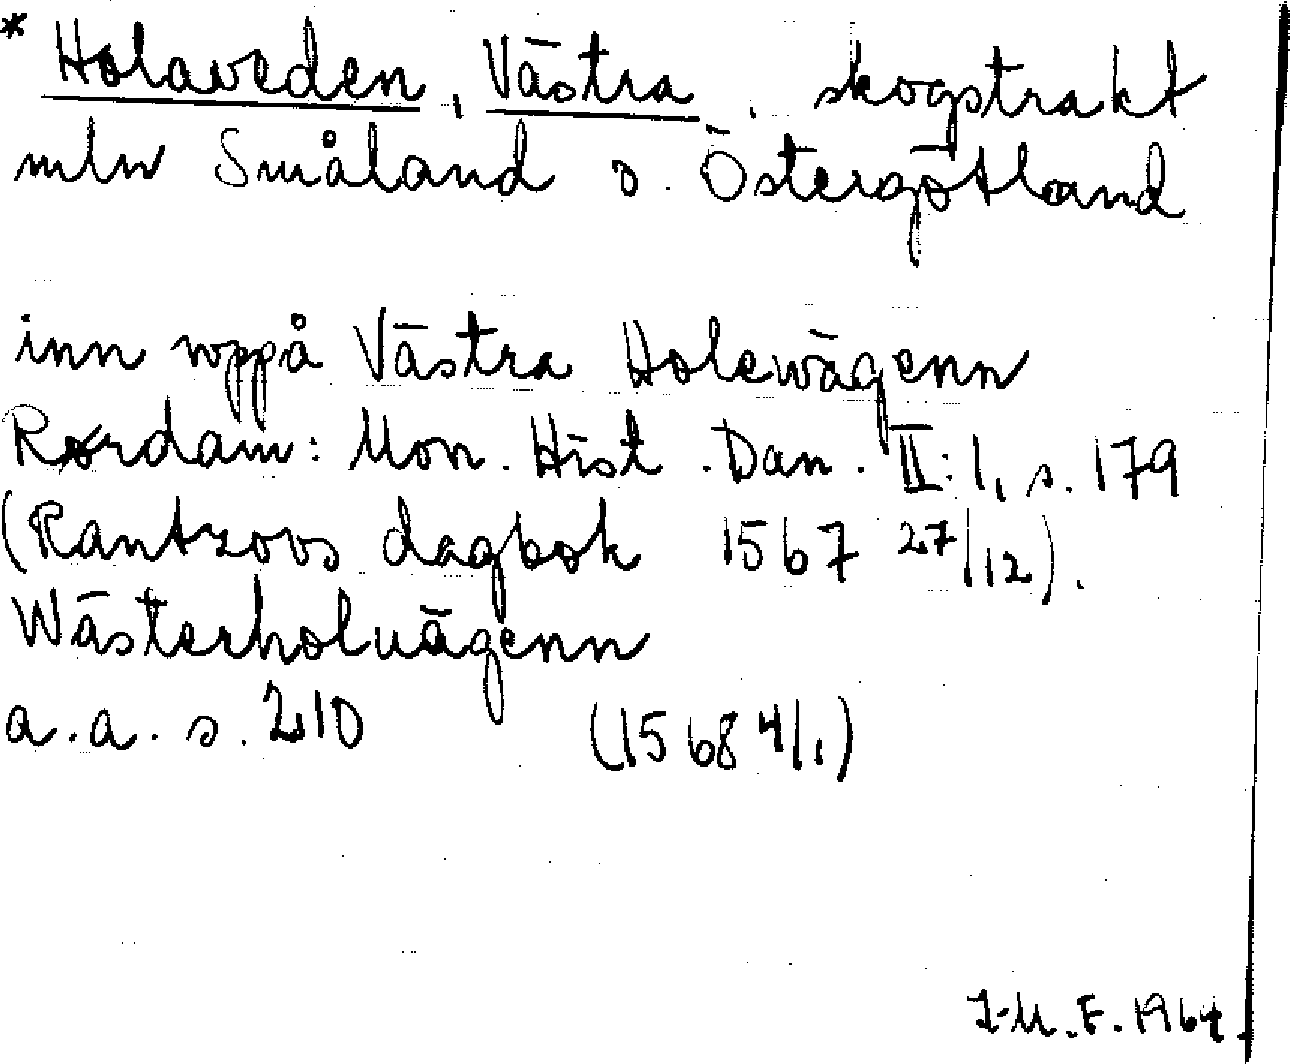 * Holaveden, Västra, skogstrakt
mln Småland o. Östergötland
inn wppå Västra Holewägenn
Rørdam: Mon. Hist. Dan. II:1, s. 179
(Rantzovs dagbok 1567 27/12).
Wästerholuägenn
a.a. s. 210 (1568 4/1)
I-M.F. 1964.